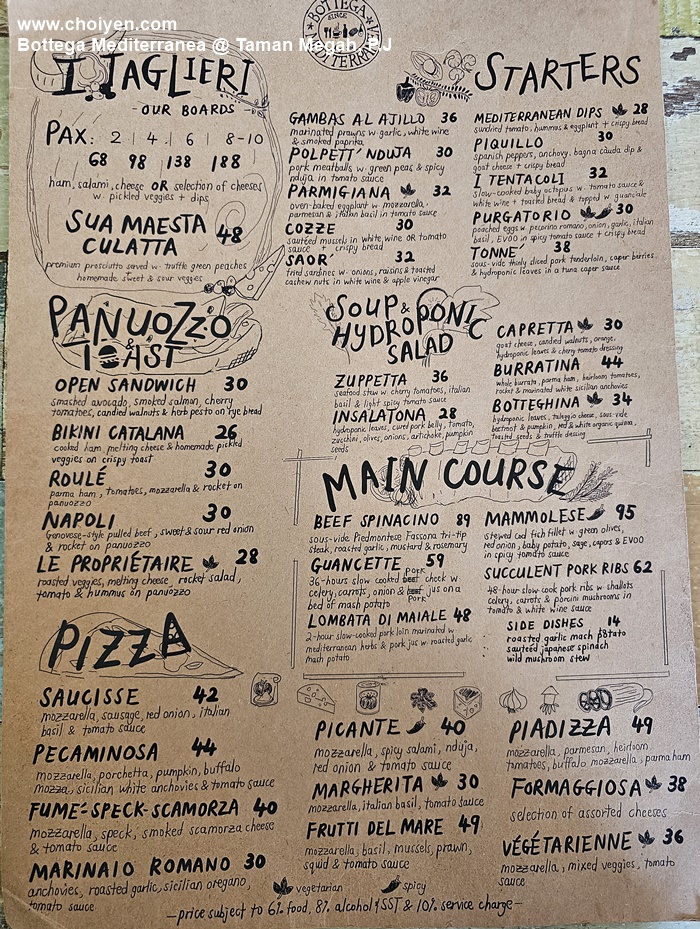 www.choiyen.com
Bottega Mediterranea @ Taman Megah, PJ
BOTTEGA
SINCE
MEDITERRANEA
I TAGLIERI
- OUR BOARDS -
PAX: 2 | 4 | 6 | 8-10
68 98 138 188
ham, salami, cheese OR selection of cheeses
w. pickled veggies + dips
SUA MAESTA
CULATTA 48
premium prosciutto served w. truffle green peaches
homemade sweet & sour veggies
STARTERS
GAMBAS AL AJILLO 36
marinated prawns w. garlic, white wine
& smoked paprika
POLPETT' NDUJA 30
pork meatballs w. green peas & spicy
nduja in tomato sauce
PARMIGIANA 32
oven-baked eggplant w. mozzarella,
parmesan & italian basil in tomato sauce
COZZE 30
sautéed mussels in white wine OR tomato
sauce + crispy bread
SAOR' 32
fried sardines w. onions, raisins & toasted
cashew nuts in white wine & apple vinegar
MEDITERRANEAN DIPS 28
sundried tomato, hummus & eggplant + crispy bread
PIQUILLO 30
spanish peppers, anchovy, bagna càuda dip &
goat cheese + crispy bread
I TENTACOLI 32
slow-cooked baby octopus w. tomato sauce &
white wine + toasted bread & topped w guanciale
PURGATORIO 30
poached eggs w. pecorino romano, onion, garlic, italian
basil, EVOO in spicy tomato sauce + crispy bread
TONNE' 38
sous-vide thinly sliced pork tenderloin, caper berries
& hydroponic leaves in a tuna caper sauce
PANUOZZO
TOAST
OPEN SANDWICH 30
smashed avocado, smoked salmon, cherry
tomatoes, candied walnuts & herb pesto on rye bread
BIKINI CATALANA 26
cooked ham, melting cheese & homemade pickled
veggies on crispy toast
ROULÉ 30
parma ham, tomatoes, mozzarella & rocket on
panuozzo
NAPOLI 30
Genovese-style pulled beef, sweet & sour red onion
& rocket on panuozzo
LE PROPRIÉTAIRE 28
roasted veggies, melting cheese, rocket salad,
tomato & hummus on panuozzo
SOUP &
HYDROPONIC
SALAD
ZUPPETTA 36
seafood stew w. cherry tomatoes, italian
basil & light spicy tomato sauce
INSALATONA 28
hydroponic leaves, cured pork belly, tomato,
zucchini, olives, onions, artichoke, pumpkin
seeds
CAPRETTA 30
goat cheese, candied walnuts, orange,
hydroponic leaves & cherry tomato dressing
BURRATINA 44
whole burrata, parma ham, heirloom tomatoes,
rocket & marinated white sicilian anchovies
BOTTEGHINA 34
hydroponic leaves, taleggio cheese, sous-vide
beetroot & pumpkin, red & white organic quinoa,
toasted seeds & truffle dressing
MAIN COURSE
BEEF SPINACINO 89
sous-vide Piedmontese Fassona tri-tip
steak, roasted garlic, mustard & rosemary
GUANCETTE 59
pork
36-hours slow cooked beef cheek w.
celery, carrots, onion & beef jus on a
pork
bed of mash potato
LOMBATA DI MAIALE 48
2-hour slow-cooked pork loin marinated w
mediterranean herbs & pork jus w. roasted garlic
mash potato
MAMMOLESE 95
stewed cod fish fillet w. green olives,
red onion, baby potato, sage, capers & EVOO
in spicy tomato sauce
SUCCULENT PORK RIBS 62
48-hour slow-cook pork ribs w. shallots
celery, carrots & porcini mushrooms in
tomato & white wine sauce
SIDE DISHES 14
roasted garlic mash potato
sauteed japanese spinach
wild mushroom stew
PIZZA
SAUCISSE 42
mozzarella, sausage, red onion, italian
basil & tomato sauce
PECAMINOSA 44
mozzarella, porchetta, pumpkin, buffalo
mozza, sicilian white anchovies & tomato sauce
FUMÉ-SPECK-SCAMORZA 40
mozzarella, speck, smoked scamorza cheese
& tomato sauce
MARINAIO ROMANO 30
anchovies, roasted garlic, sicilian oregano,
tomato sauce
PICANTE 40
mozzarella, spicy salami, nduja,
red onion & tomato sauce
MARGHERITA 30
mozzarella, italian basil, tomato sauce
FRUTTI DEL MARE 49
mozzarella, basil, mussels, prawn,
squid & tomato sauce
PIADIZZA 49
mozzarella, parmesan, heirloom,
tomatoes, buffalo mozzarella, parma ham
FORMAGGIOSA 38
selection of assorted cheeses
VÉGÉTARIENNE 36
mozzarella, mixed veggies, tomato
sauce
vegetarian
spicy
- price subject to 6% food, 8% alcohol SST & 10% service charge -